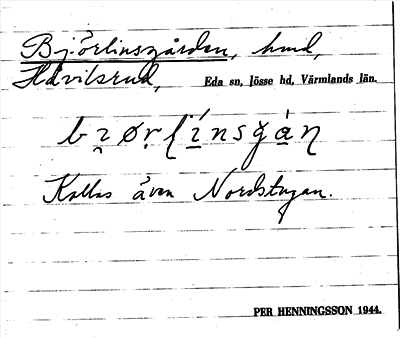 Björlinsgården, hmd,
Hävilsrud, Eda sn, Jösse hd, Värmlands län.
Kallas även Nordstugan.
PER HENNINGSSON 1944.